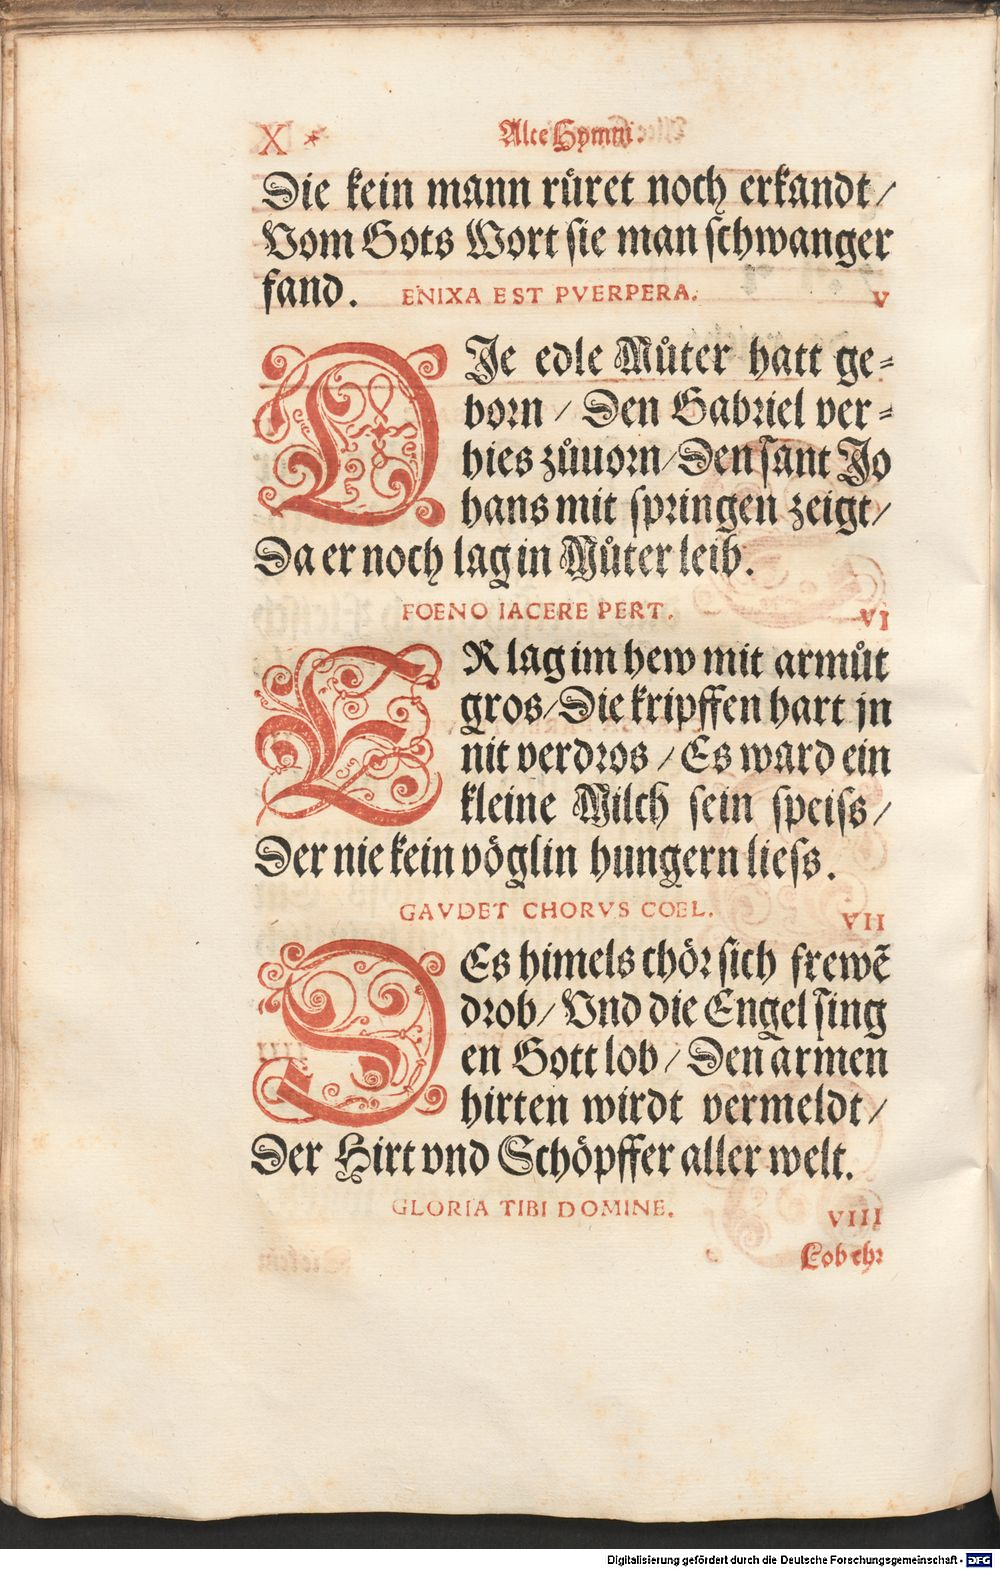 X *
Alte Hymni.
Die kein mann růret noch erkandt/
Vom Gots Wort sie man schwanger
fand. ENIXA EST PVERPERA. V
DIe edle Můter hatt ge-
born / Den Gabriel ver-
hies zůuorn/Den sant Jo
hans mit springen zeigt/
Da er noch lag in Můter leib.
FOENO IACERE PERT. VI
ER lag im hew mit armůt
gros/Die kripffen hart jn
nit verdros / Es ward ein
kleine Milch sein speiss/
Der nie kein vöglin hungern liess.
GAVDET CHORVS COEL. VII
DEs himels chör sich frewẽ
drob/Vnd die Engel sing
en Gott lob/Den armen
hirten wirdt vermeldt/
Der Hirt vnd Schöpffer aller welt.
GLORIA TIBI DOMINE. VIII
Lob ehr
Digitalisierung gefördert durch die Deutsche Forschungsgemeinschaft - DFG